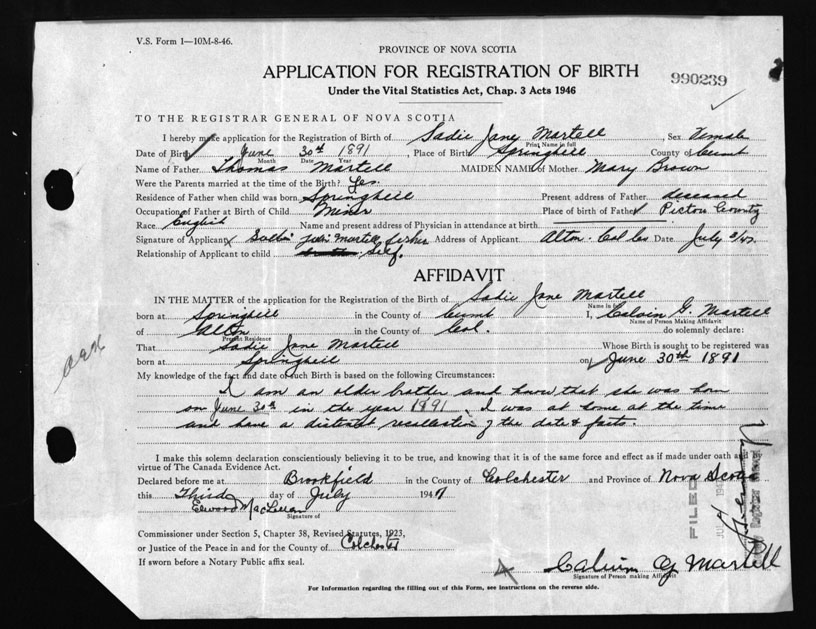 V.S. Form 1—10M-8-46.
PROVINCE OF NOVA SCOTIA
APPLICATION FOR REGISTRATION OF BIRTH
990239
Under the Vital Statistics Act, Chap. 3 Acts 1946
TO THE REGISTRAR GENERAL OF NOVA SCOTIA
I hereby make application for the Registration of Birth of Sadie Jane Martell, Sex Female
Print Name in full
Date of Birth June 30th 1891, Place of Birth Springhill County of Cumb
Month Date Year
Name of Father Thomas Martell MAIDEN NAME of Mother Mary Brown
Were the Parents married at the time of the Birth? Yes.
Residence of Father when child was born Springhill Present address of Father deseased
Occupation of Father at Birth of Child Miner Place of birth of Father Pictou County
Race English Name and present address of Physician in attendance at birth
Signature of Applicant Sadie Jane Martell Fisher Address of Applicant Alton Col Co Date July 3/47
Relationship of Applicant to child Self.
AFFIDAVIT
IN THE MATTER of the application for the Registration of the Birth of Sadie Jane Martell
Name in full
born at Springhill in the County of Cumb I, Calvin G. Martell
Name of Person Making Affidavit
of Alton in the County of Col. do solemnly declare:
Present Residence
That Sadie Jane Martell Whose Birth is sought to be registered was
born at Springhill on June 30th 1891
My knowledge of the fact and date of such Birth is based on the following Circumstances:
I am an older brother and know that she was born
on June 30th in the year 1891. I was at home at the time
and have a distinct recollection of the date & facts.
I make this solemn declaration conscientiously believing it to be true, and knowing that it is of the same force and effect as if made under oath and by
virtue of The Canada Evidence Act.
Declared before me at Brookfield in the County of Colchester and Province of Nova Scotia
this Third day of July 1947
Elwood MacLellan
Signature of
Commissioner under Section 5, Chapter 38, Revised Statutes, 1923,
or Justice of the Peace in and for the County of Colchester
If sworn before a Notary Public affix seal.
FILED
Calvin G Martell
Signature of Person making Affidavit
For Information regarding the filling out of this Form, see instructions on the reverse side.